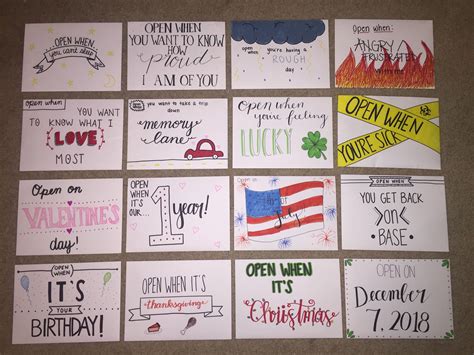 OPEN WHEN
you can't sleep
OPEN WHEN
YOU WANT TO KNOW
HOW
proud
I AM OF YOU
open when you're having a
ROUGH
day
Open when:
ANGRY
FRUSTRATED
Open when
YOU WANT
TO KNOW WHAT I
LOVE
MOST
you want to take a trip
down
memory
lane
Open when
you're feeling
LUCKY
OPEN WHEN
YOU'RE SICK
Open on
VALENTINE'S
day!
OPEN
WHEN
IT'S
OUR...
1
year!
July
OPEN WHEN
YOU GET BACK
>ON<
BASE
OPEN
WHEN
IT'S
YOUR
BIRTHDAY!
OPEN WHEN IT'S
thanksgiving
OPEN WHEN
IT'S
Christmas
OPEN ON
December
7, 2018